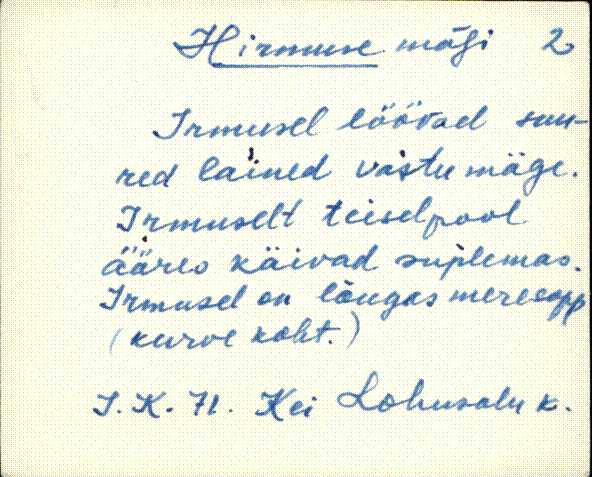 Hirmuse mägi 2
Irmusel löövad suu-
red lained vastu mäge.
Irmuselt teiselpool
ääres käivad suplemas.
Irmusel on lõugas meresopp
(kurve koht.)
I. K. 71. Kei Lohusalu k.